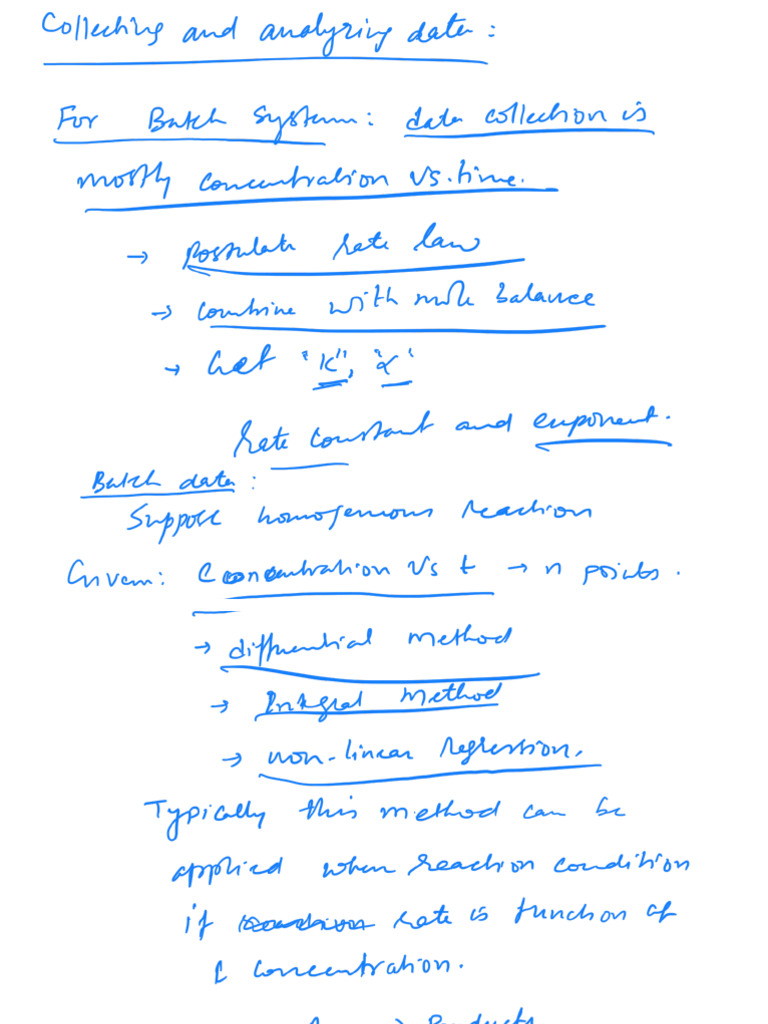 Collecting and analyzing data:
For Batch System: data collection is
mostly concentration vs. time.
→ Postulate rate law
→ Combine with mole balance
→ Get "k", "α"
rate constant and exponent.
Batch data:
Suppose homogenous reaction
Given: Concentration Vs t → n points.
→ differential method
→ Integral Method
→ non-linear regression.
Typically this method can be
applied when reaction condition
if rate is function of
concentration.
→ Products